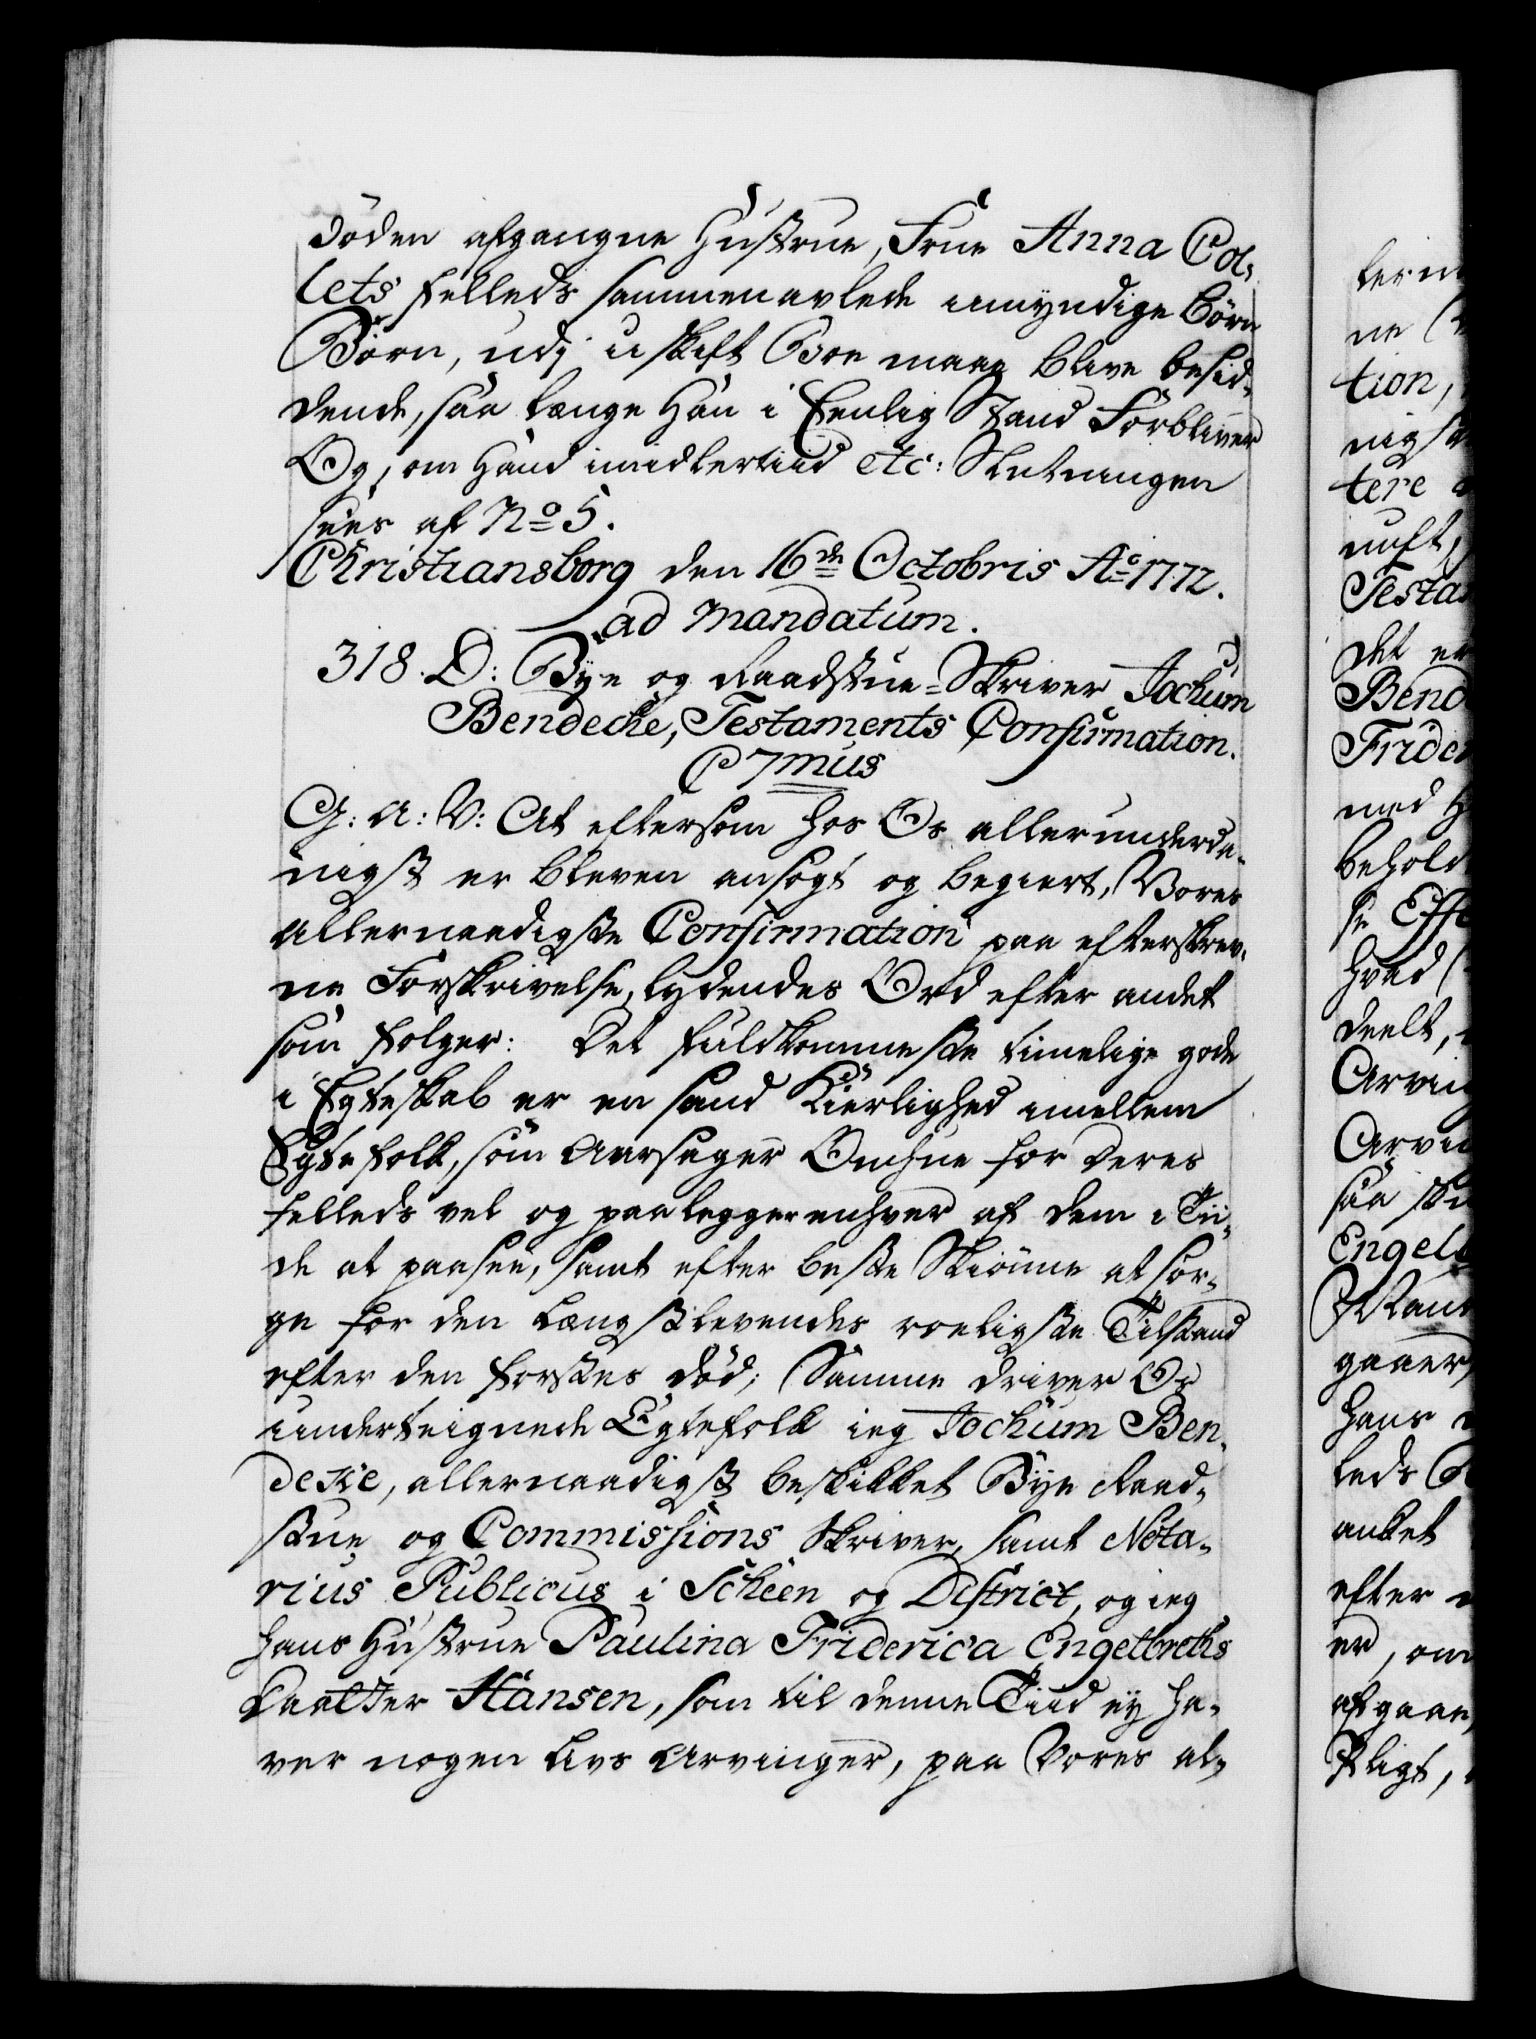 döden afgangne Hustrue, Frue Anna Col-
lets felleds sammenavlede umyndige börn
Börn, udj uskift Boe maae blive besid-
dende, saa længe Han i Eenlig Stand Forbliver
Og, om Hand imidlertiid etc: Slutningen
sees af No 5.
Christiansborg den 16de Octobris Ao 1772.
ad mandatum.
318. D: Bye og Raadstue-Skriver Jochum
Bendeche, Testaments Confirmation.
C 7mus
G: A: V: At eftersom hos Os allerunderda-
nigst er bleven ansögt og begiert, Vores
allernaadigste Confirmation paa efterskrev-
ne Forskrivelse, lydendes Ord efter andet
som fölger: Det fuldkommeste timelige gode
i Egteskab er en sand Kierlighed imellem
Egtefolk, som Aarsager Omhue for deres
felleds vel og paalegger enhver af dem i Tii-
de at paasee, samt efter beste Skiönne at sor-
ge for den Længstlevendes roeligste Tilstand
efter den förstes död; Samme driver Os
underteignede Egtefolk ieg Jochum Ben-
deke, allernaadigst beskikket Bye Raad-
stue og Commissions Skriver, samt Nota-
rius Publicus i Scheen og District, og ieg
hans Hustrue Paulina Friderica Engelbreths
Daatter Hansen, som til denne Tiid ey ha-
ver nogen Livs Arvinger, paa Vores al-

ne
tion,
tere
Testa
det er
Bend
Frider
med H
behold
se Effe
hvad
deelt,
Arving
Arvin
saa sku
Engel
gaaer
hans
leds
anket
efter
er, om
afgaae,
Pligt,